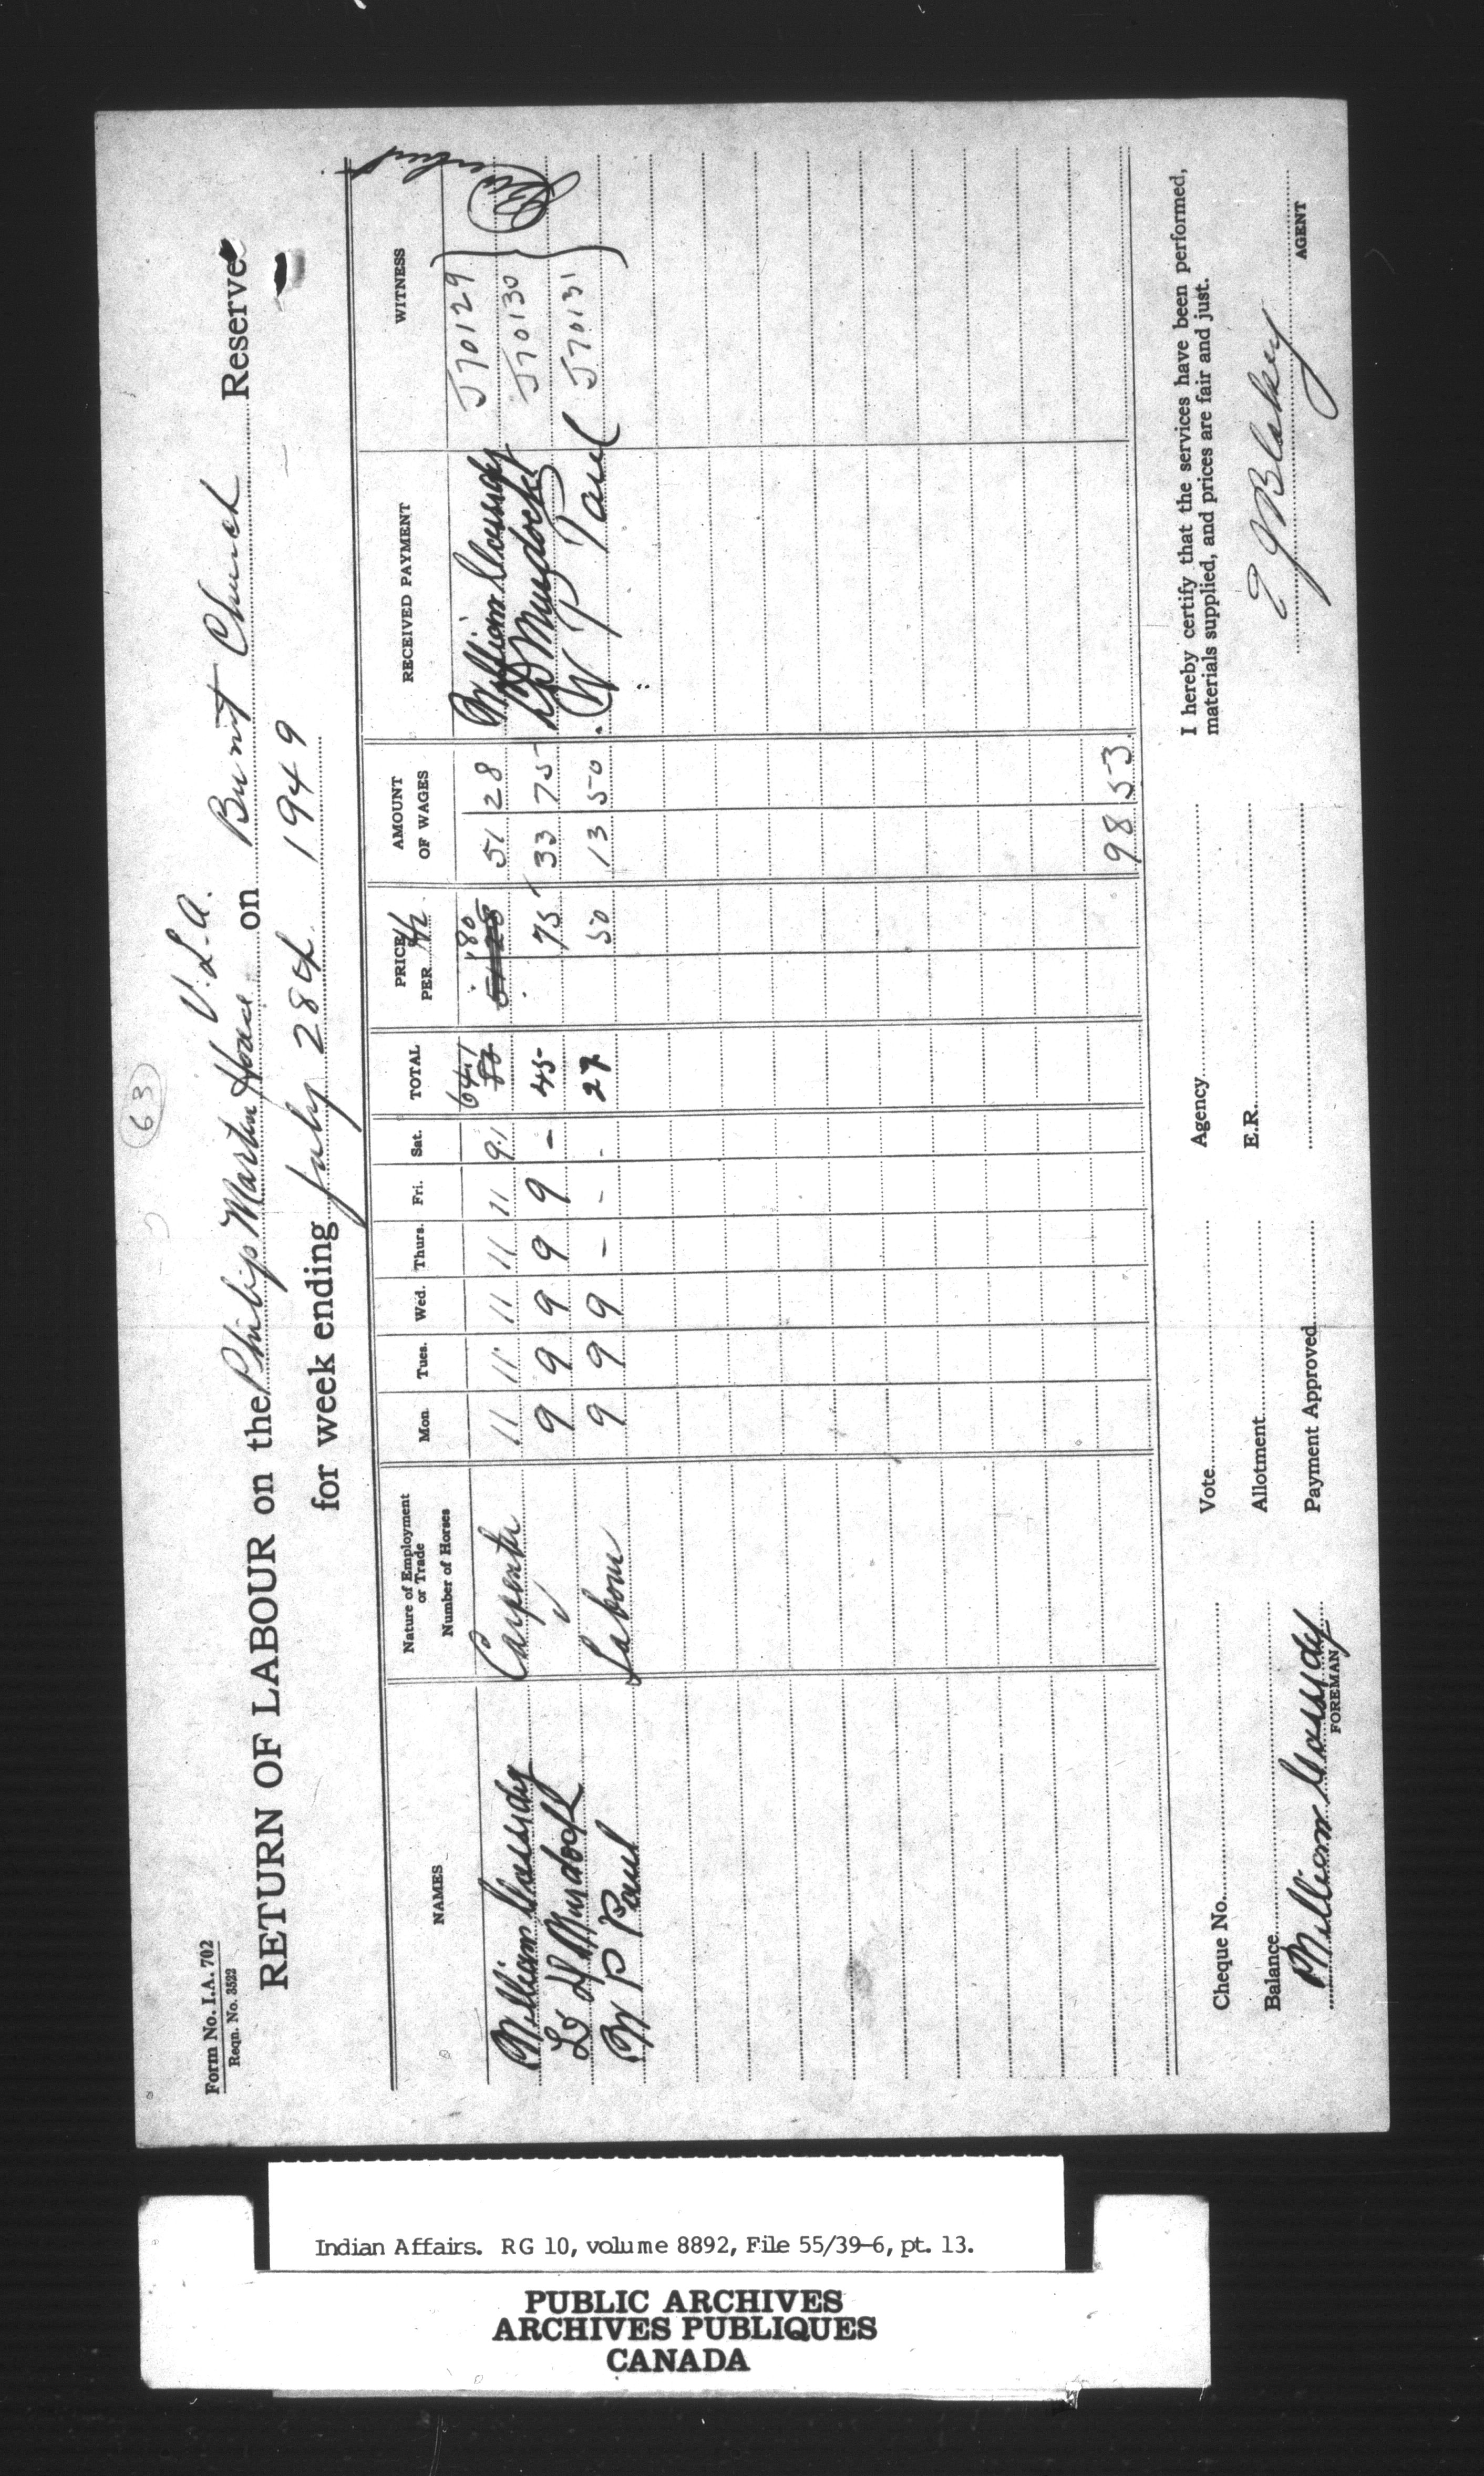 63
Form No. I.A. 702
Reqn. No. 3522
V.L.A.
RETURN OF LABOUR on the Philip Martin House on Burnt Church Reserve
for week ending July 28th 1949
NAMES Nature of Employment or Trade Number of Horses Mon. Tues. Wed. Thurs. Fri. Sat. TOTAL PRICE PER AMOUNT OF WAGES RECEIVED PAYMENT WITNESS
William Cassidy Carpenter 11 11 11 11 11 9.1 64.1 80 51 28 William Cassidy J70129
L D Murdock " 9 9 9 9 9 - 45 75 33 75 L D Murdock J70130
W P Paul Labour 9 9 9 - - - 27 50 13 50 W P Paul J70131
98 53
Cheque No. Vote Agency I hereby certify that the services have been performed,
materials supplied, and prices are fair and just.
Balance Allotment E.R.
William Cassidy Payment Approved E J Blakey
FOREMAN AGENT
Indian Affairs. RG 10, volume 8892, File 55/39-6, pt. 13.
PUBLIC ARCHIVES
ARCHIVES PUBLIQUES
CANADA